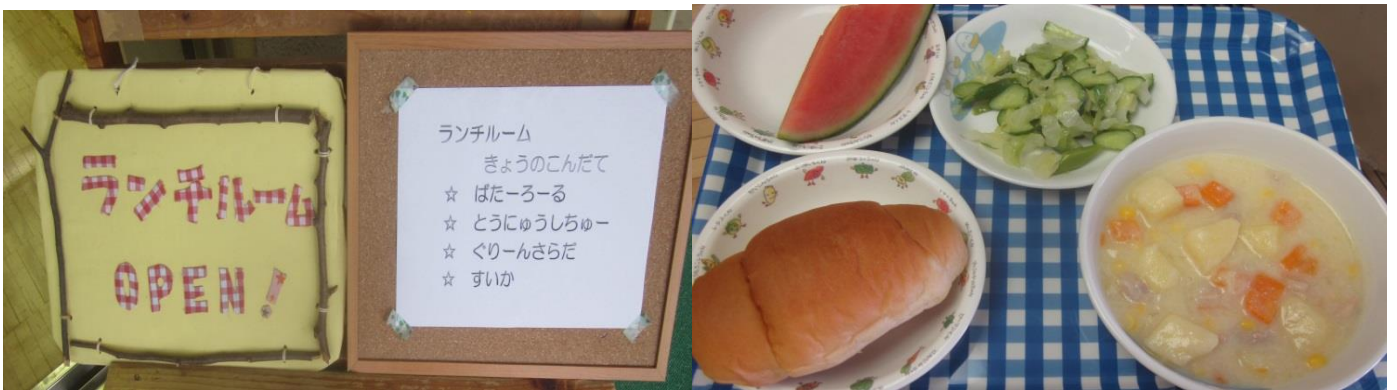 ランチルーム
OPEN!
ランチルーム
きょうのこんだて
☆ ばたーろーる
☆ とうにゅうしちゅー
☆ ぐりーんさらだ
☆ すいか